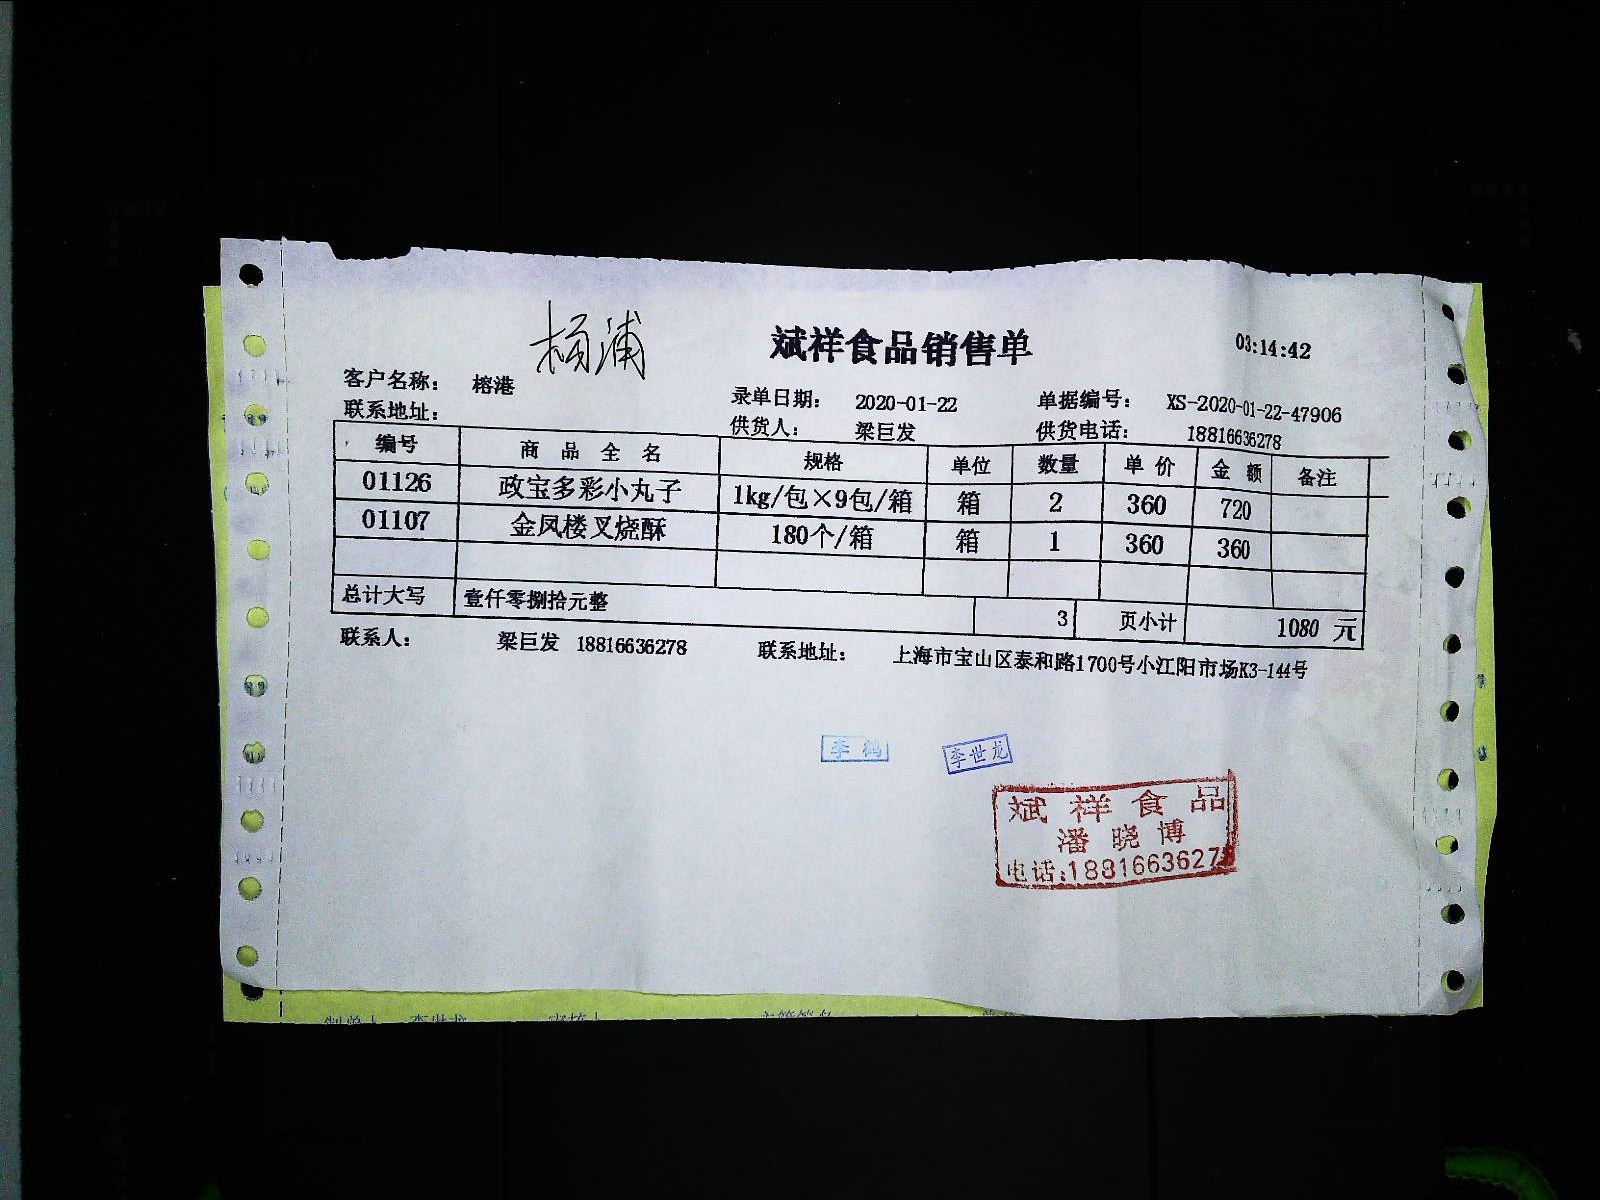 杨浦
斌祥食品销售单
03:14:42
客户名称： 榕港 录单日期： 2020-01-22 单据编号： XS-2020-01-22-47906
联系地址： 供货人： 梁巨发 供货电话： 18816636278
编号 商品全名 规格 单位 数量 单价 金额 备注
01126 政宝多彩小丸子 1kg/包×9包/箱 箱 2 360 720
01107 金凤楼叉烧酥 180个/箱 箱 1 360 360
总计大写 壹仟零捌拾元整 3 页小计 1080 元
联系人： 梁巨发 18816636278 联系地址： 上海市宝山区泰和路1700号小江阳市场K3-144号
李鹤 李世龙
斌祥食品
潘晓博
电话:18816636278